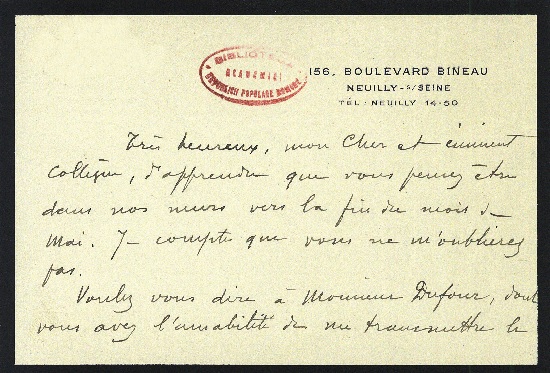 BIBLIOTECA
ACADEMIEI
REPUBLICII POPULARE ROMÎNE
156, BOULEVARD BINEAU
NEUILLY-S/SEINE
TÉL: NEUILLY 14-50
Très heureux, mon Cher et éminent
Collègue, d'apprendre que vous pensez être
dans nos murs vers la fin du mois de
Mai. Je compte que vous ne m'oublierez
pas.
Voulez vous dire à Monsieur Dufour, dont
vous avez l'amabilité de me transmettre le